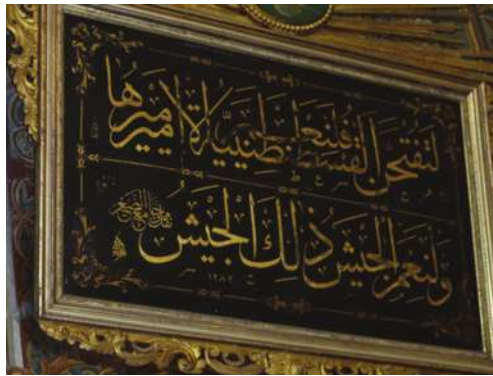 لتفتحن القسطنطينية فلنعم الأمير أميرها
ولنعم الجيش ذلك الجيش
١٢٨٢